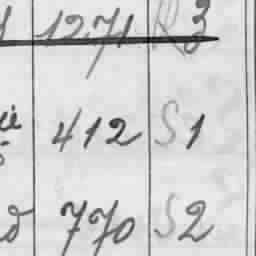 1271 R3
412 S1
770 S2